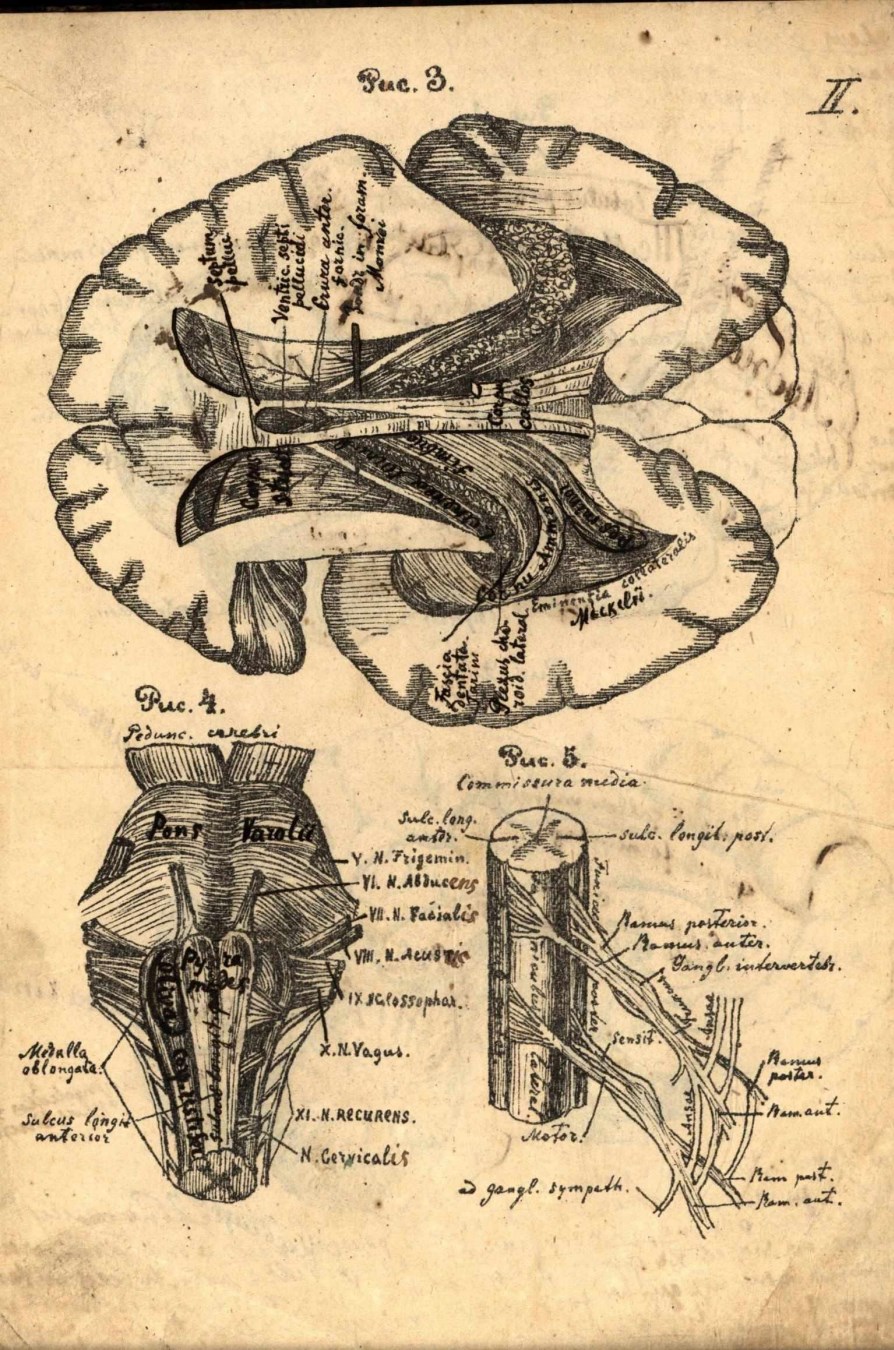 Рис. 3.
II.
Septum
pelluc
Ventric. septi
pellucidi
Crura anter.
fornic.
Sonde in foram.
Monroi
Corpus
callos
Corpus
striat
Fimbria
Cornu Ammonis
Pes minor
Eminentia collateralis
Meckelii.
Fascia
dentata
Tarini
Plexus cho-
roid. lateral
Рис. 4.
Pedunc. cerebri
Pons Varolii
V. N. Trigemin.
VI. N. Abducens
VII. N. Facialis
VIII. N. Acustic
IX N Glossophar.
X. N. Vagus.
XI. N. RECURENS.
N. Cervicalis
Pyra
mides
Oliva
Medulla
oblongata.
Sulcus longit
anterior
Рис. 5.
Commissura media.
Sulc. long.
anter.
sulc. longit. post.
Ramus posterior.
Ramus anter.
Gangl. intervertebr.
Ansae
sensit.
Motor.
Ansae
Ramus
poster.
Ram. ant.
Ram post.
Ram. ant.
ad gangl. sympath.